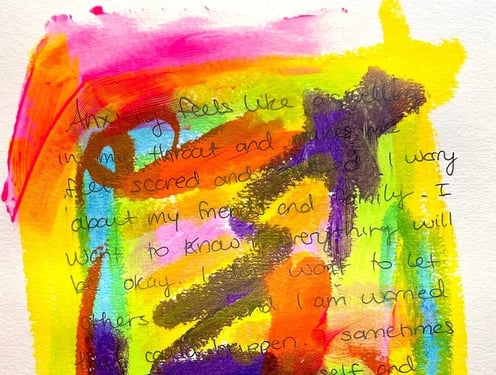 Anxiety feels like a
in my throat and makes me
feel scared and I worry
about my and family. I
want to know everything will
be okay. I to let
others and I am worried
happen. sometimes
and